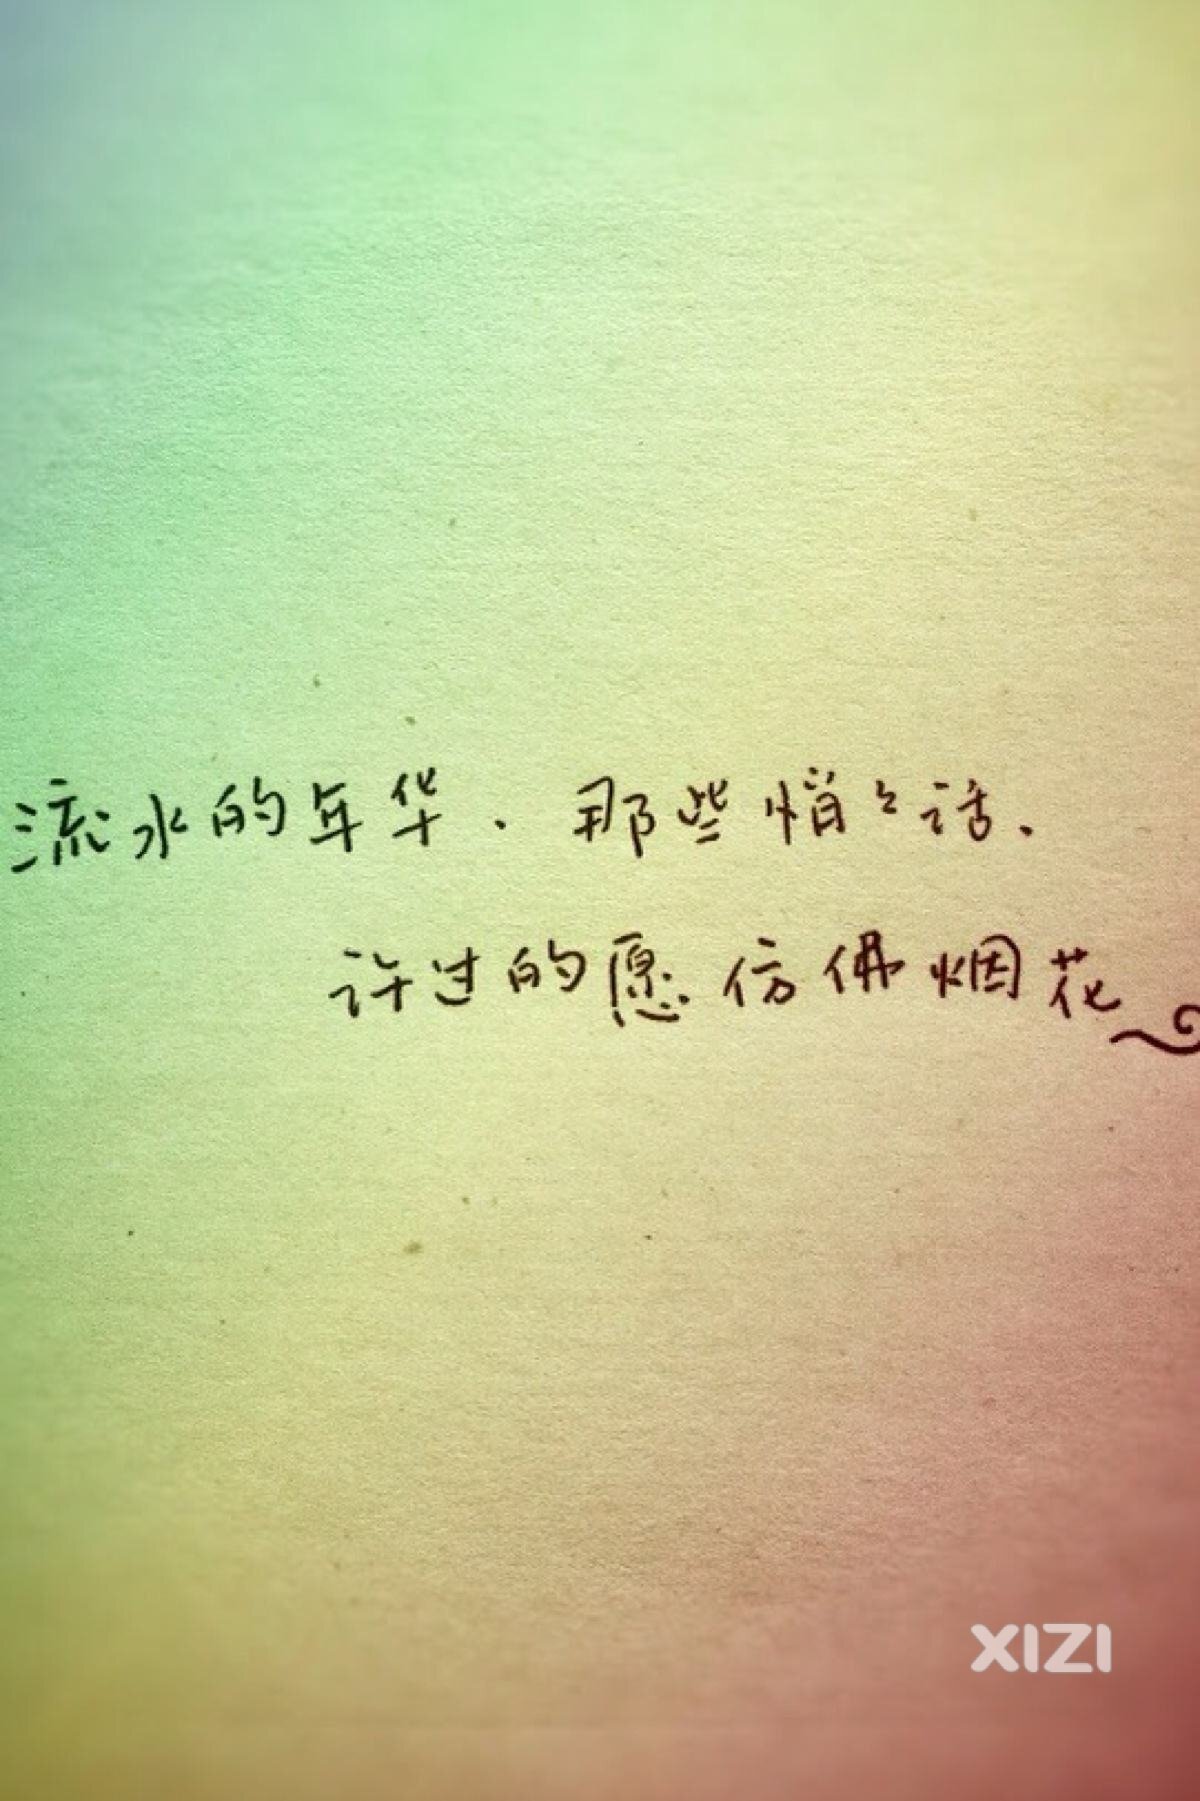 流水的年华.那些悄々话.
许过的愿仿佛烟花
XIZI